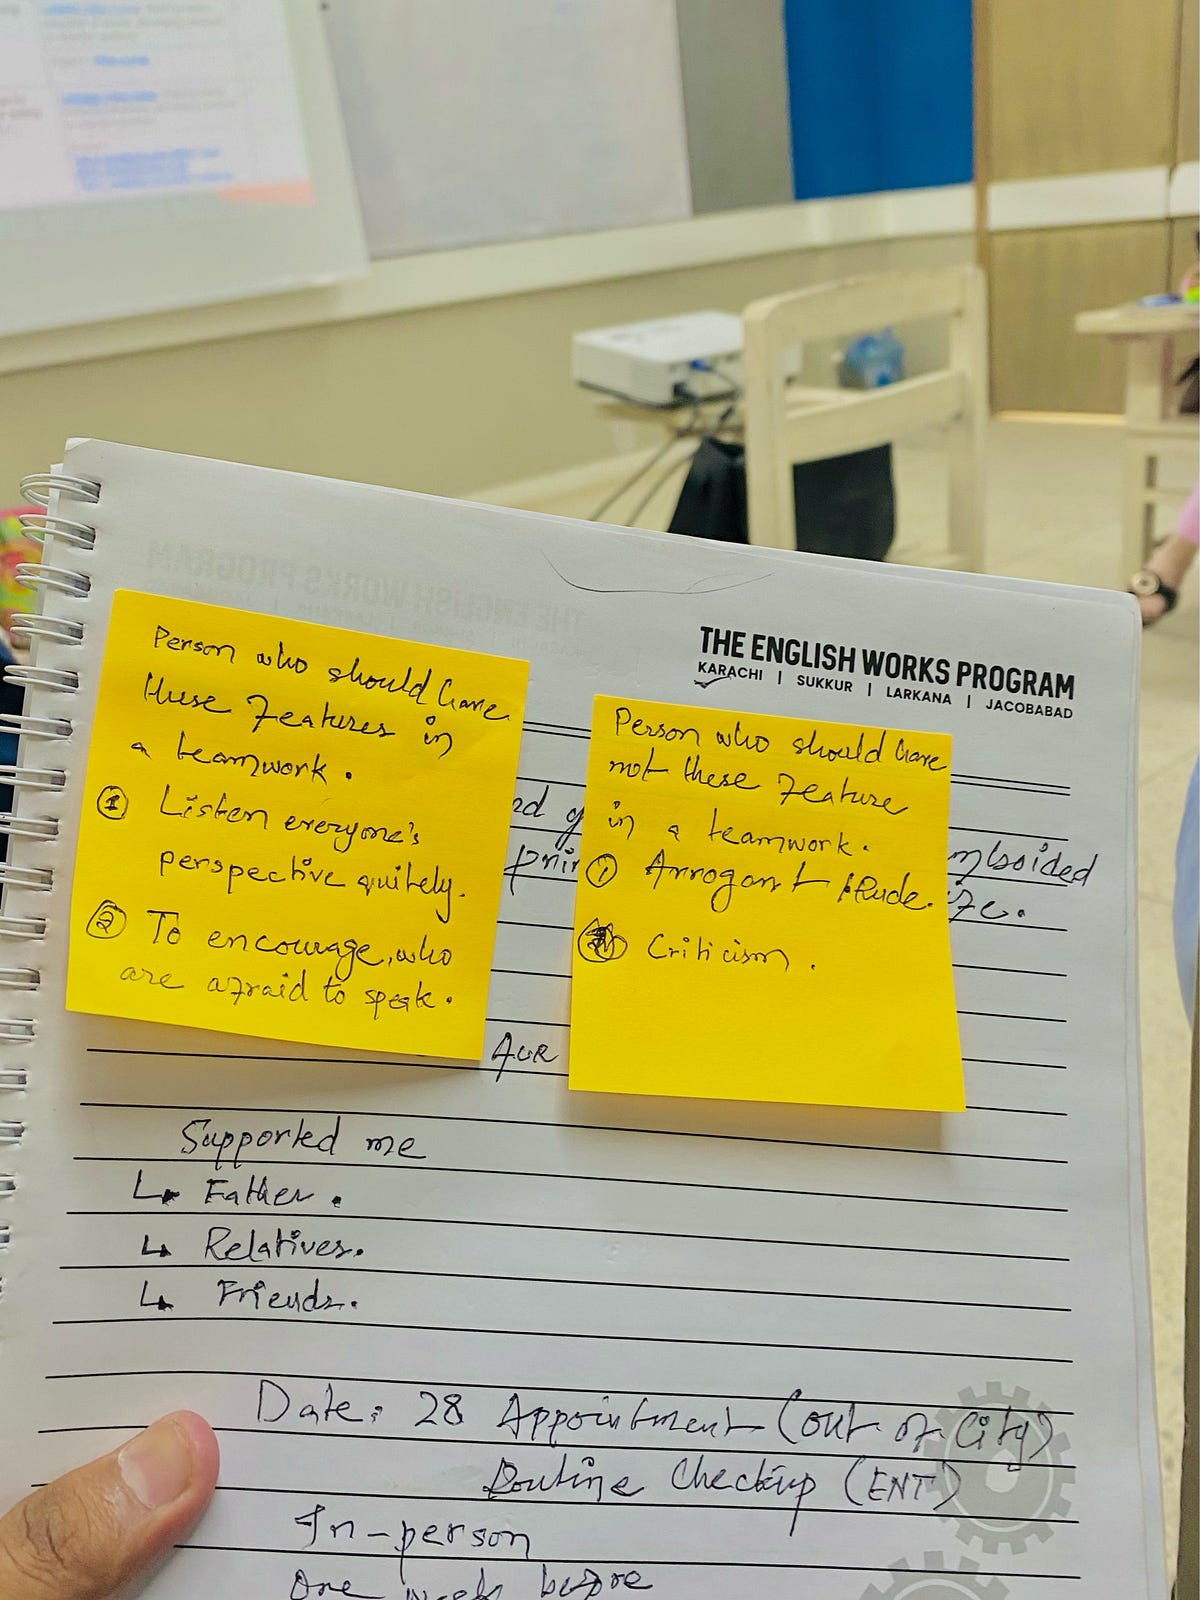 THE ENGLISH WORKS PROGRAM
KARACHI | SUKKUR | LARKANA | JACOBABAD
Person who should have
these features in
a teamwork.
① Listen everyone's
perspective quitely.
② To encourage, who
are afraid to speak.
Person who should have
not these feature
in a teamwork.
① Arrogant
Criticism.
Supported me
↳ Father.
↳ Relatives.
↳ Friends.
Date: 28 Appointment (out of City)
Routine Checkup (ENT)
In-person
One week before